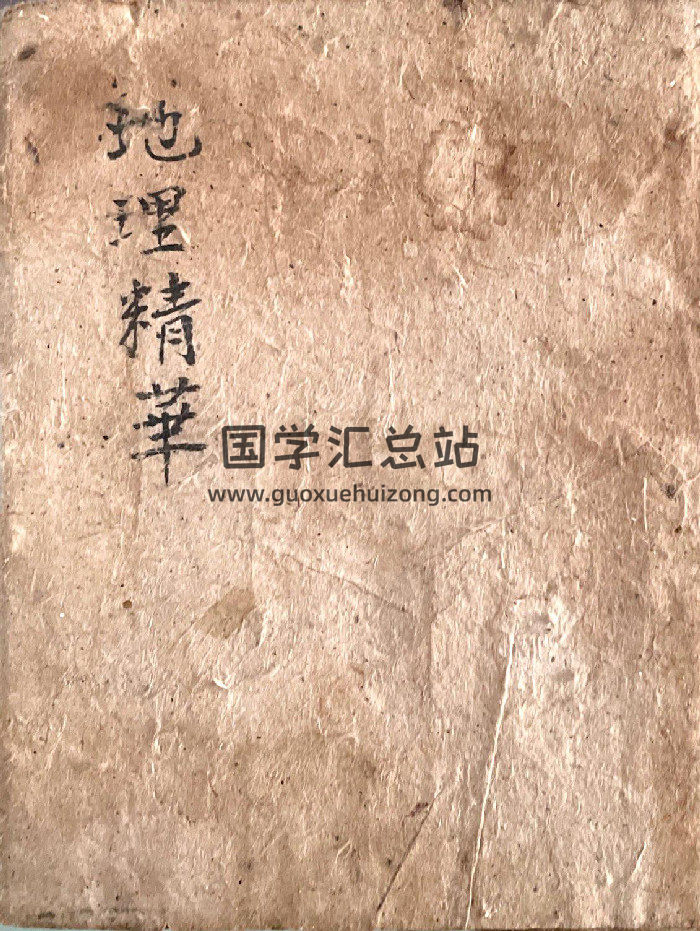 地理精華
国学汇总站
www.guoxuehuizong.com